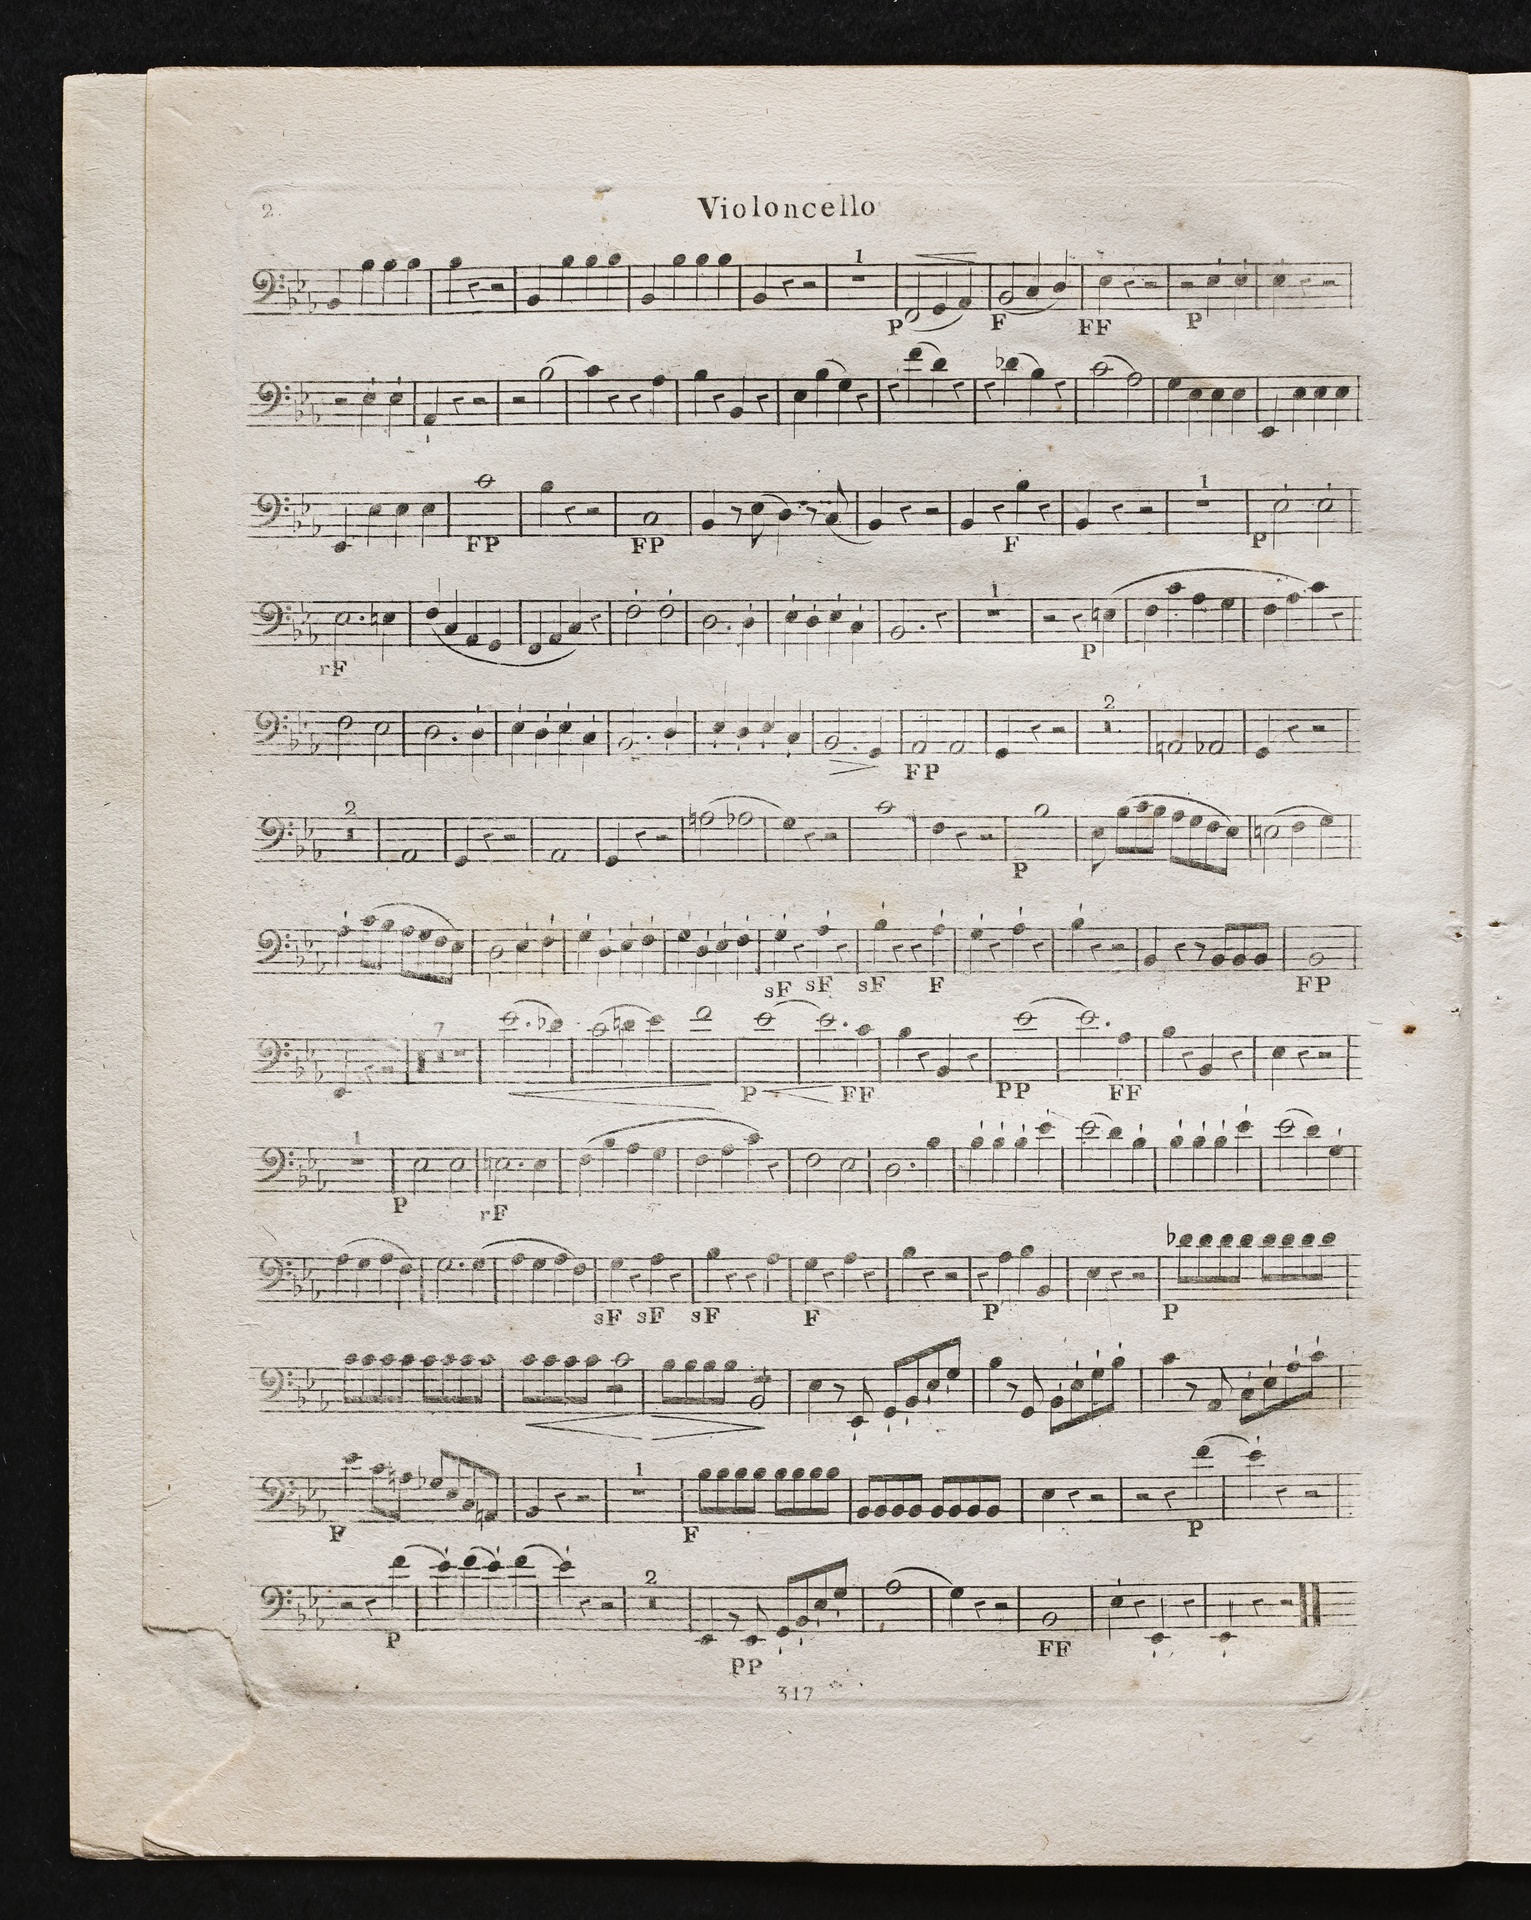 2.
Violoncello
1
P F FF P
FP FP F 1 P
rF 1 P
2
FP
2
P
sF sF sF F FP
7
P FF PP FF
1
P rF
sF sF sF F P P
F 1 F P
2
P PP FF
317